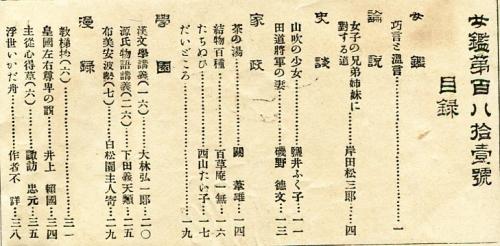 女鑑第百八拾壹號
目錄
女鑑
巧言と溫言……………一
論說
女子の兄弟姉妹に
對する道……岸田松三郎…四
史談
山吹の少女……鹽井ふく子…一一
田道將軍の妻……磯野德文…一三
家政
茶の湯……關葦雄…一四
結物百種……百草庵一無…一六
たちぬひ……西山たい子…一七
だいどころ……………一九
學園
漢文學講義(一六)……大林弘一郎…二〇
源氏物語講義(二六)……下田義天類…二五
布美安波勢(七)……白松園主人寄…二九
漫錄
敎梯抄(六)……………三一
皇國左右尊卑の說……井上賴國…三四
主從心得草(六)……諏訪忠元…三五
浮世いかだ舟……作者不詳…三八